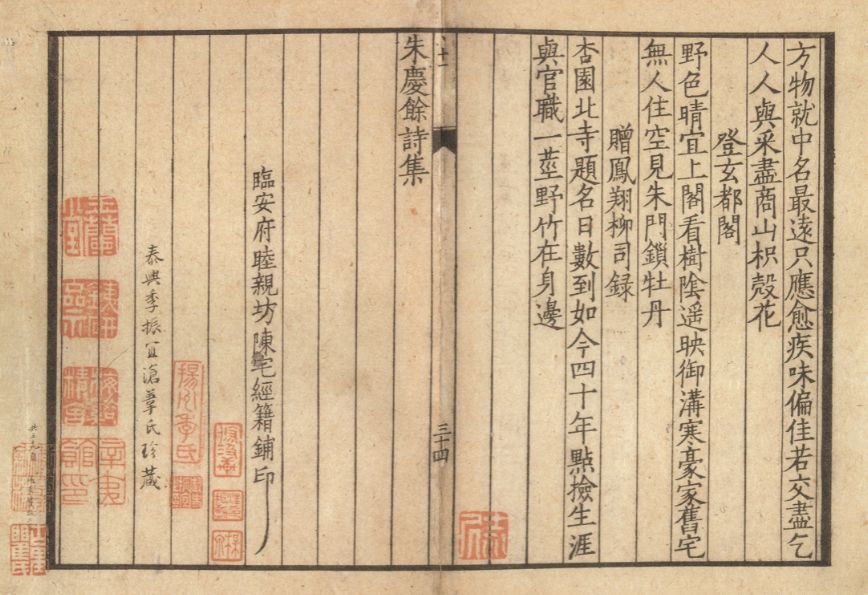 方物就中名最遠只應愈疾味偏佳若交盡乞
人人與采盡商山枳殼花
登玄都閣
野色晴宜上閣看樹陰遥映御溝寒豪家舊宅
無人住空見朱門鎖牡丹
贈鳳翔柳司録
杏園北寺題名日數到如今四十年點撿生涯
與官職一莖野竹在身邊
三十四
朱慶餘詩集
臨安府睦親坊陳宅經籍鋪印
揚州季氏
泰興季振宜滄葦氏珍藏